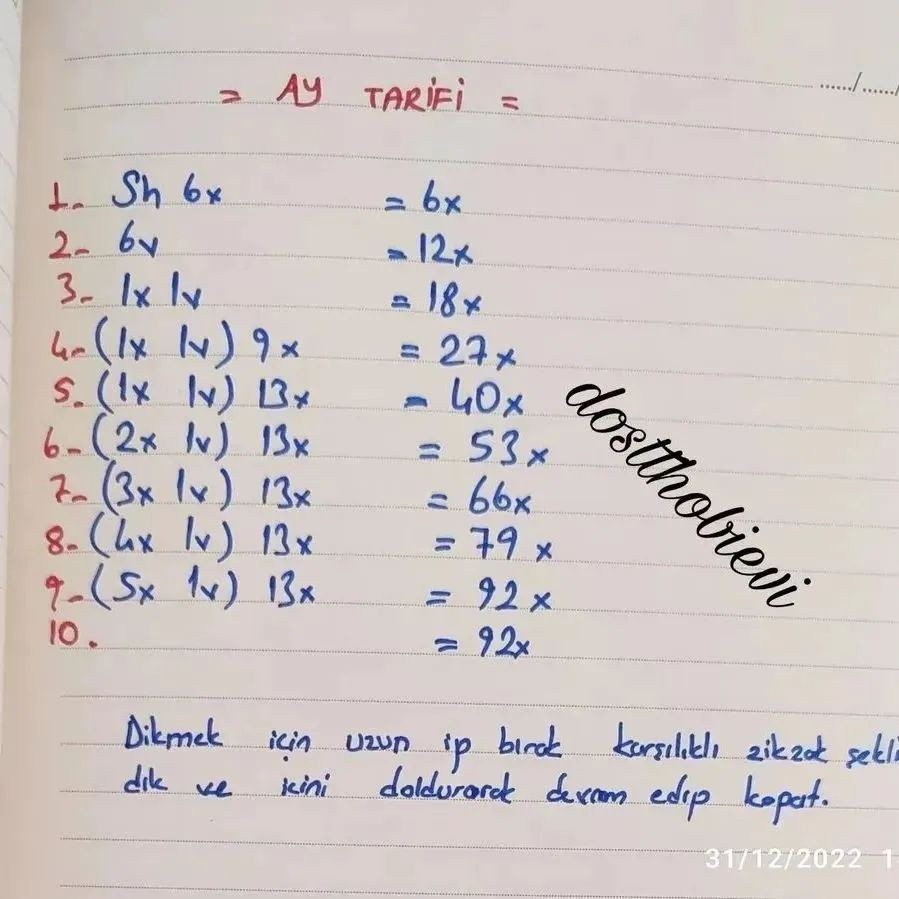 ....../......
= AY TARİFİ =
1. Sh 6x = 6x
2- 6v = 12x
3- 1x 1v = 18x
4- (1x 1v) 9x = 27x
5. (1x 1v) 13x = 40x
6- (2x 1v) 13x = 53x
7- (3x 1v) 13x = 66x
8- (4x 1v) 13x = 79x
9- (5x 1v) 13x = 92x
10. = 92x
dosttthobievi
Dikmek için uzun ip bırak karşılıklı zikzak şekli
dik ve içini doldurarak devam edip kapat.
31/12/2022 1